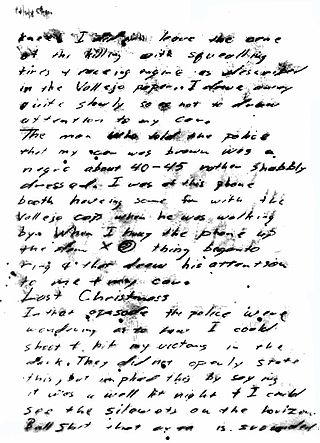 knees I did not leave the cene
of the killing with squealling
tires & raceing engine as described
in the Vallejo paper. I drove away
quite slowly so as not to draw
attention to my car.
The man who told the police
that my car was brown was a
negro about 40-45 rather shabbly
dressed. I was at this phone
booth haveing some fun with the
Vallejo cop when he was walking
by. When I hung the phone up
the dam X @ thing began to
ring & that drew his attention
to me & my car.
Last Christmass
In that epasode the police were
wondering as to how I could
shoot & hit my victoms in the
dark. They did not openly state
this, but implied this by saying
it was a well lit night & I could
see the silowets on the horizon.
Bull Shit that area is srounded